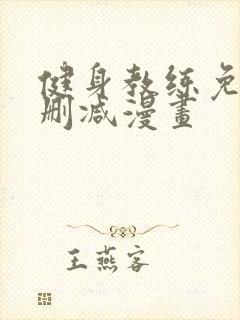 健身教练免
删减漫畫
王燕客